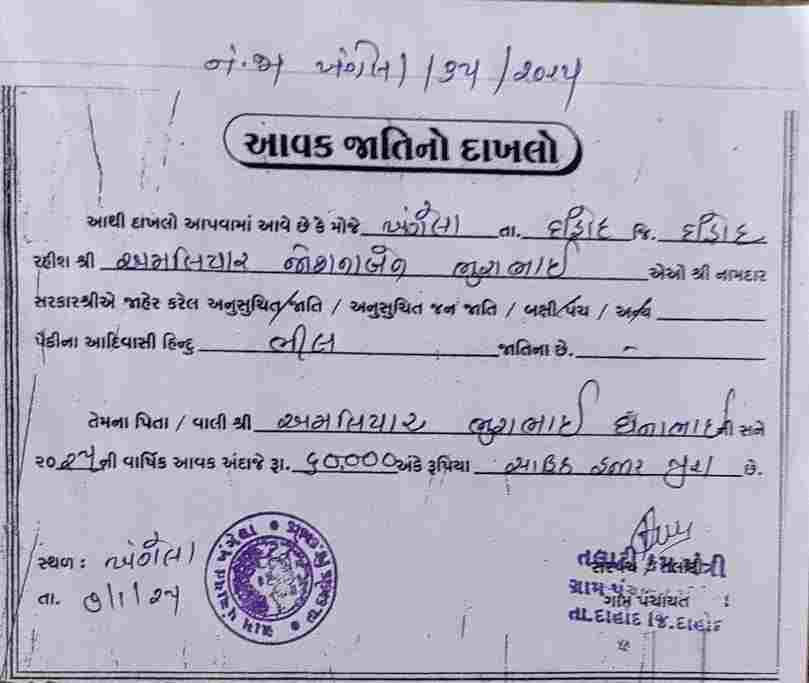 નં.જા ખંગેલા/૩૫/૨૦૨૫
આવક જાતિનો દાખલો
આથી દાખલો આપવામાં આવે છે કે મોજે ખંગેલા તા. દાહોદ જિ. દાહોદ
રહીશ શ્રી અમલિયાર જોશનાબેન ભુરાભાઈ એઓ શ્રી નામદાર
સરકારશ્રીએ જાહેર કરેલ અનુસુચિત જાતિ / અનુસુચિત જન જાતિ / બક્ષી પંચ / અન્ય
પૈકીના આદિવાસી હિન્દુ ભીલ જાતિના છે. -
તેમના પિતા / વાલી શ્રી અમલિયાર ભુરાભાઈ ધનાભાઈ ની સને
૨૦૨૫ની વાર્ષિક આવક અંદાજે રૂા. ૬૦,૦૦૦ અંકે રૂપિયા સાઈઠ હજાર પુરા છે.
સ્થળ : ખંગેલા
તા. ૭/૧/૨૫
તલાટી કમ મંત્રી
ગ્રામ પંચાયત
તા.દાહોદ જિ.દાહોદ